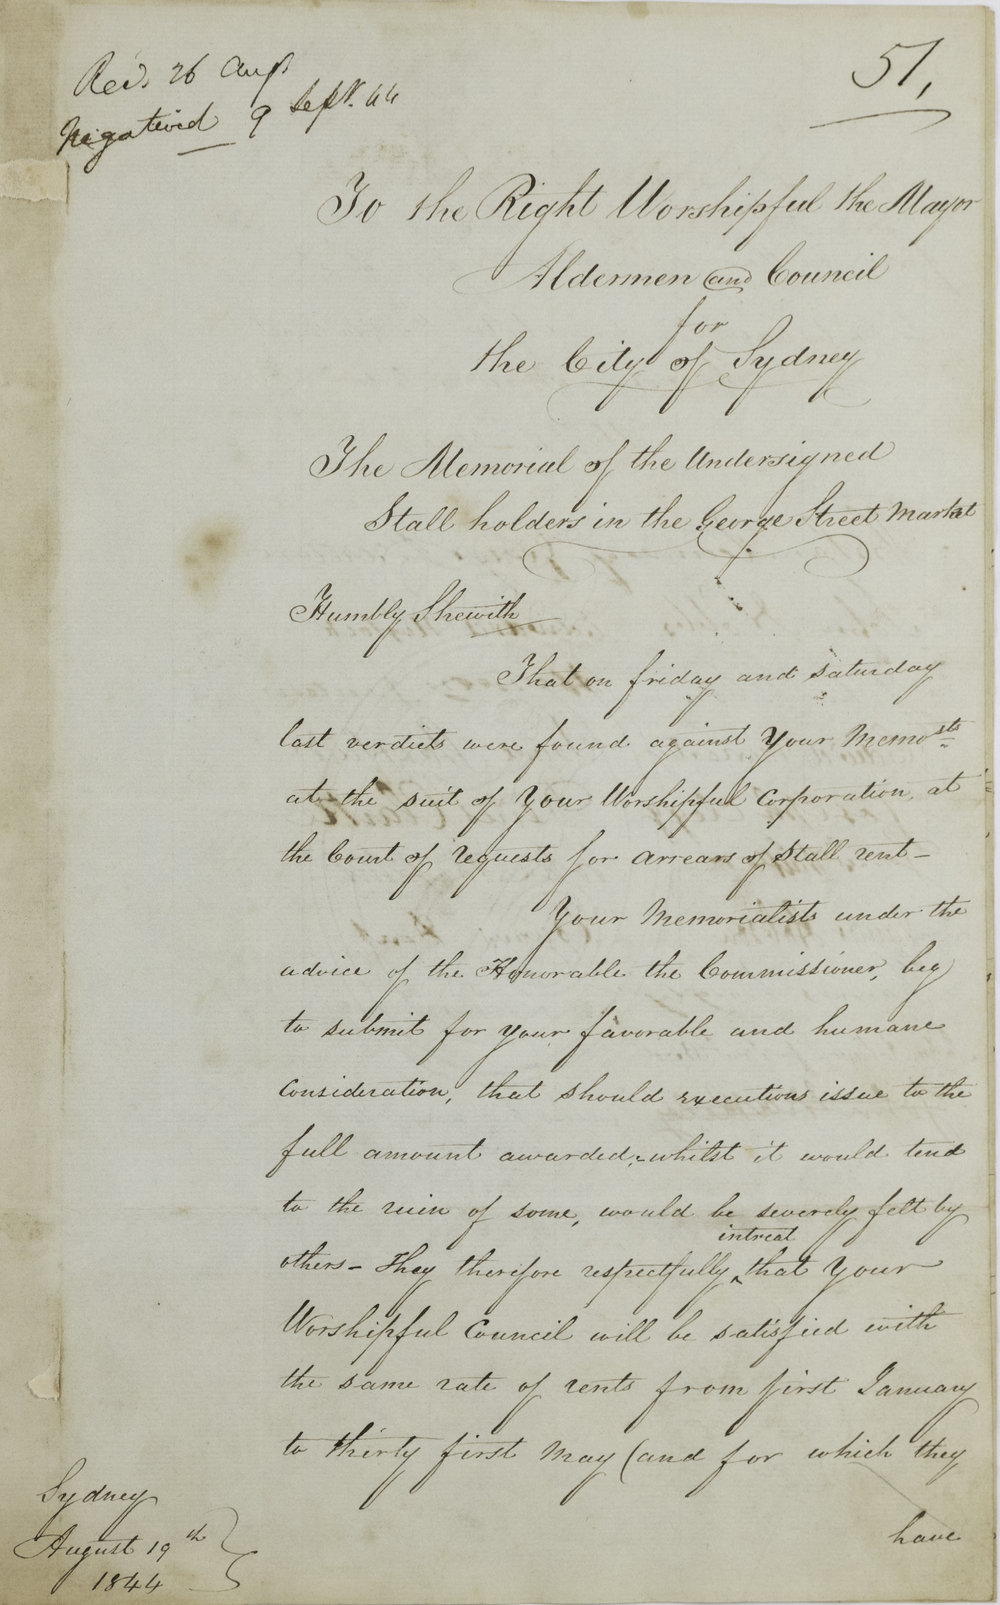 51,
Recd. 26 Augt
Negatived 9 Septr. 44
To the Right Worshipful the Mayor
Aldermen and Council
for
the City of Sydney
The Memorial of the Undersigned
Stall holders in the George Street Market
Humbly Shewith
That on friday and saturday
last verdicts were found against Your Memosts.
at the suit of Your Worshipful Corporation at
the Court of requests for arrears of Stall rent -
Your Memorialists under the
advice of the Honorable the Commissioner, beg
to submit for your favorable and humane
consideration, that should executions issue to the
full amount awarded, - whilst it would tend
to the ruin of some, would be severely felt by
others - They therefore respectfully ‸ intreat that Your
Worshipful Council will be satisfied with
the same rate of rents from first January
to thirty first May (and for which they
have
Sydney
August 19th
1844